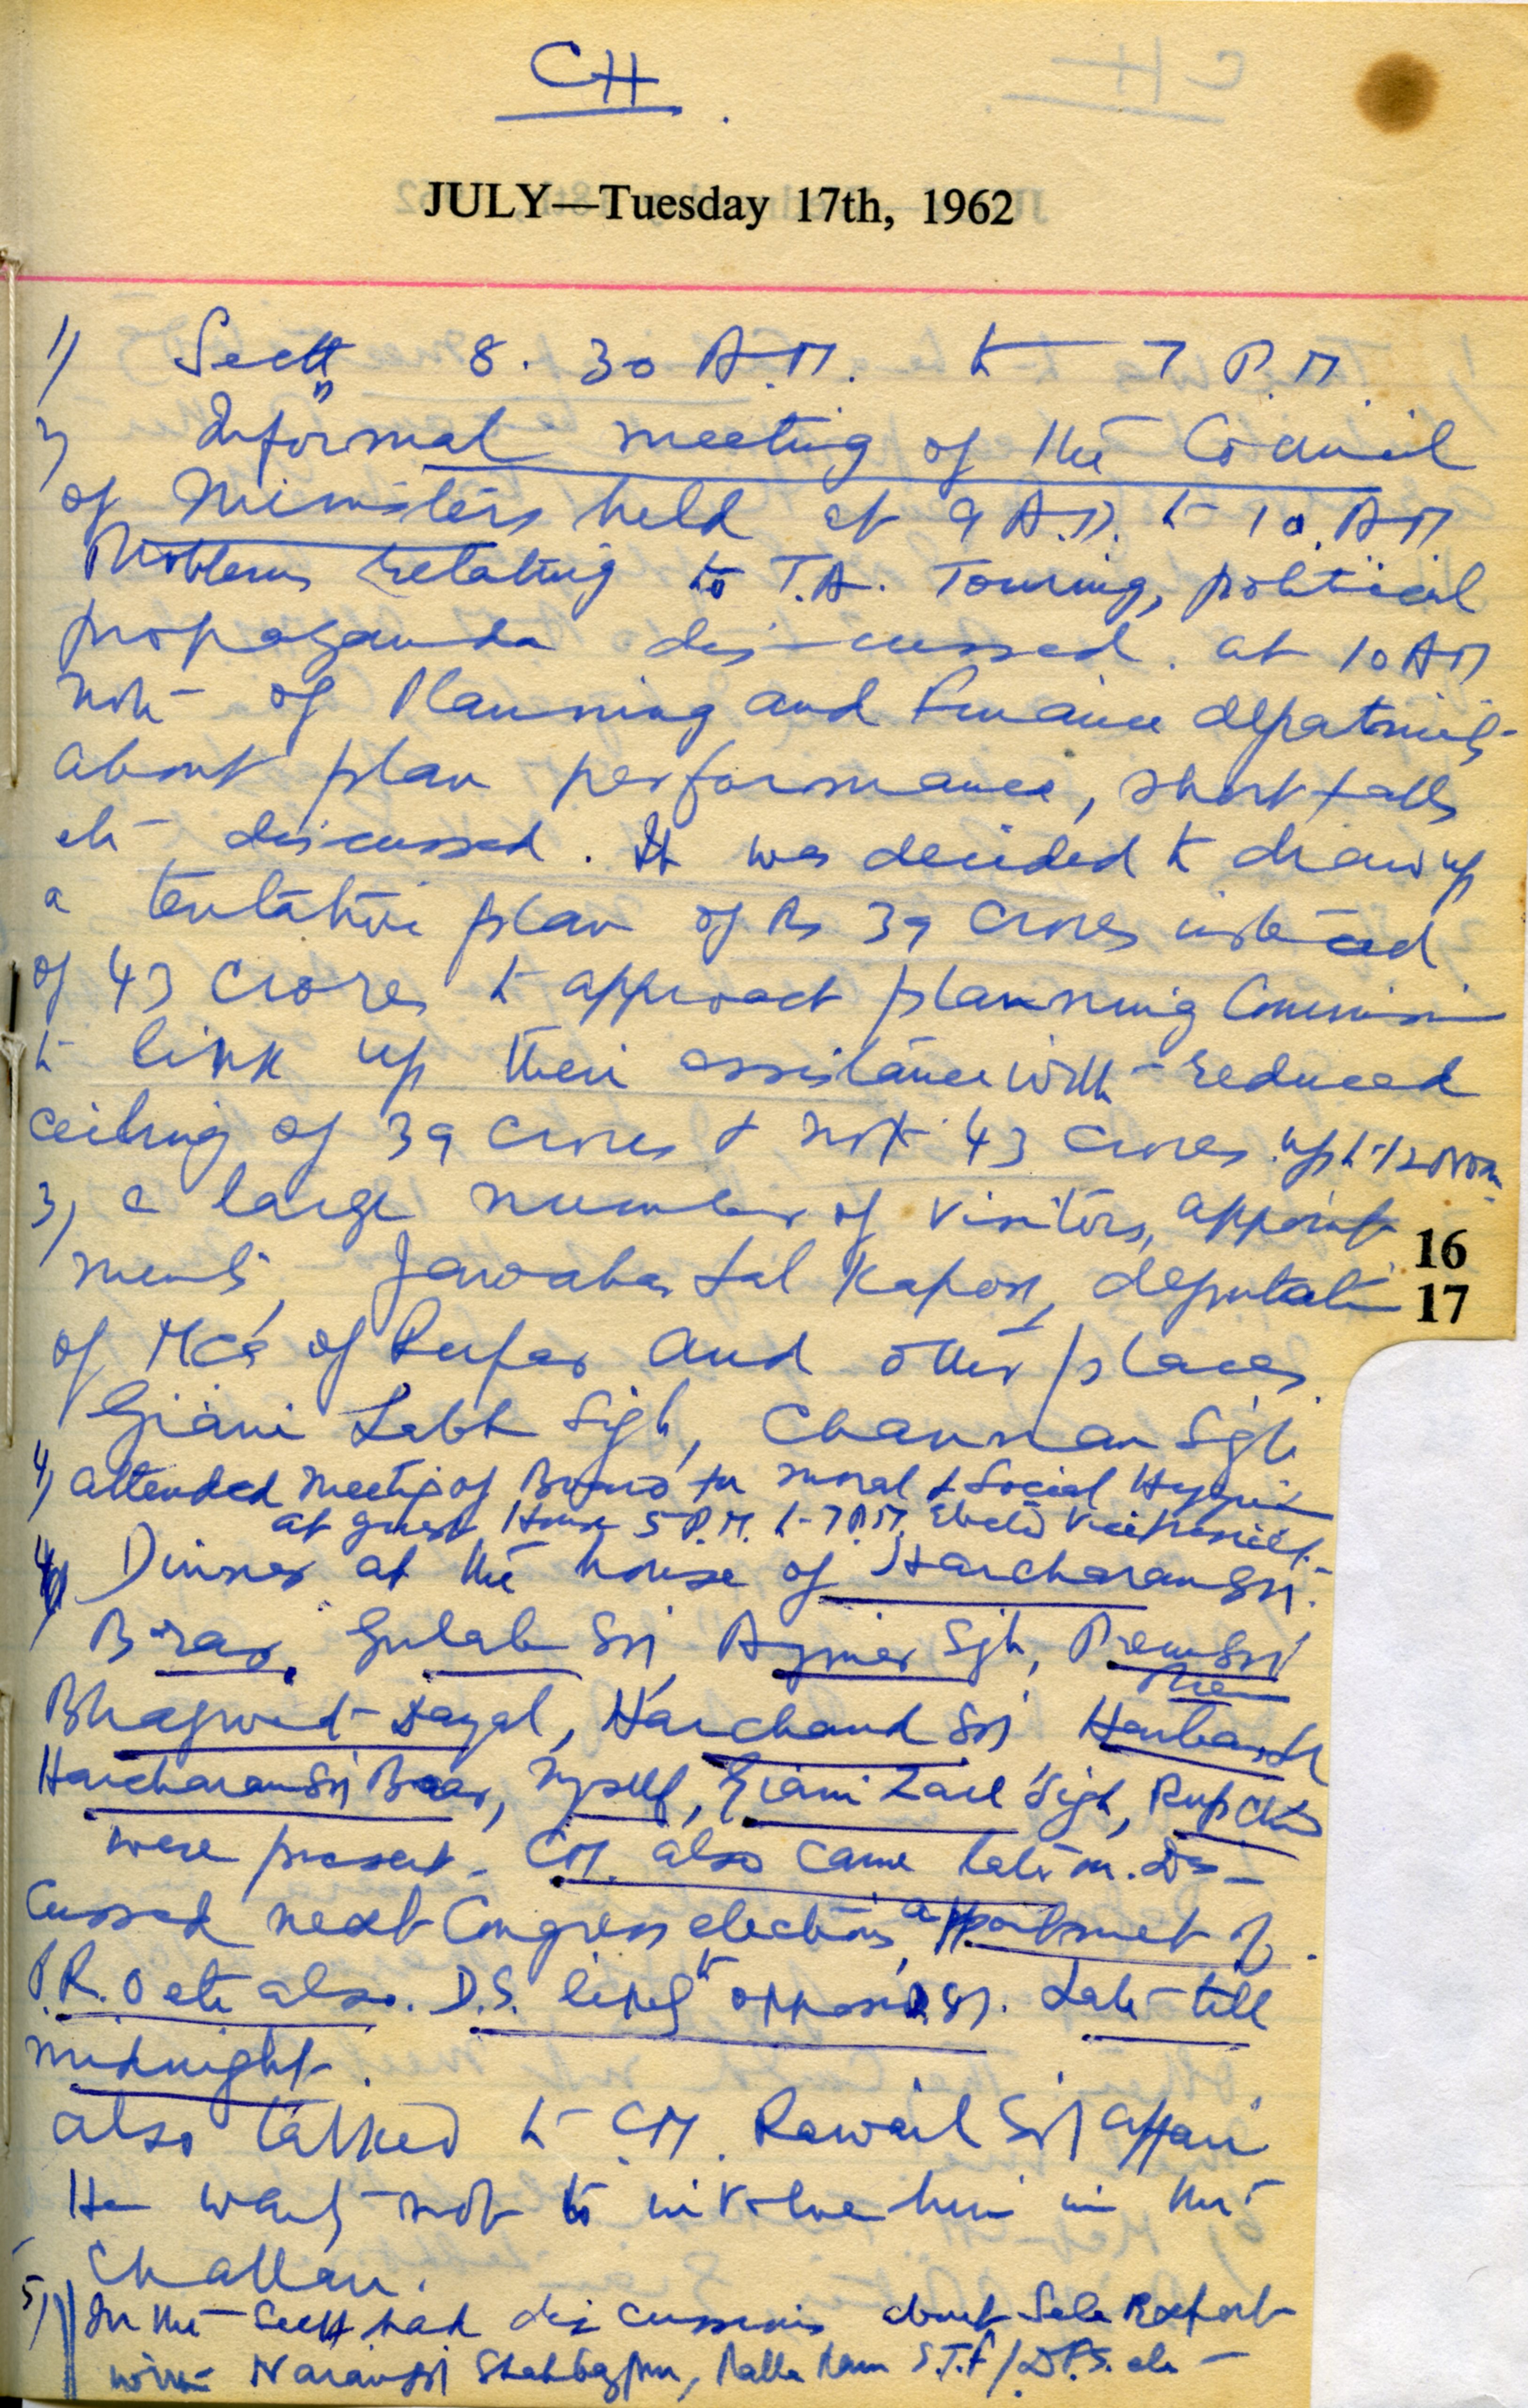 CH
JULY—Tuesday 17th, 1962
1) Sectt 8.30 A.M. to 7 P.M.
2) Informal meeting of the Council
of Ministers held at 9 A.M. to 10 A.M
Problems relating to T.A. Touring, political
propaganda discussed. at 10 AM
note of Planning and Finance departments
about plan performance, short falls
etc discussed. It was decided to draw up
a tentative plan of Rs 39 crores instead
of 43 crores to approach planning Commission
to link up their assistance with reduced
ceiling of 39 crores & not 43 crores. up to 12 noon
3) a large number of visitors, appoint
ments, Jawahar Lal Kapoor, deputation
of MCs of Rupar and other places
Giani Labh Sigh, Channan Sigh
4) attended meeting of Board for moral & Social Hygiene
at guest House 5 P.M. to 7 P.M. Elected Vice President.
Dinner at the house of Harcharan Sgh.
Brar, Gulab Sgh, Ajmer Sigh, Prem Sgh
Prem
Bhagwat Dayal, Harchand Sgh Harbans
Harcharan Sgh Brar, myself, Giani Zail Sigh, Rup
were present. CM. also came later on. Dis-
cussed next Congress elections, appointment of
P.R.O etc also. D.S. opposing. Late till
midnight.
also talked to CM. Rawail Sgh affair
He wants not to involve him in the
Challan.
5) In the Sectt had discussions about
with Narain Sgh Shahbazpuri, Ralla Ram S.T.F/D.P.S. etc
16
17